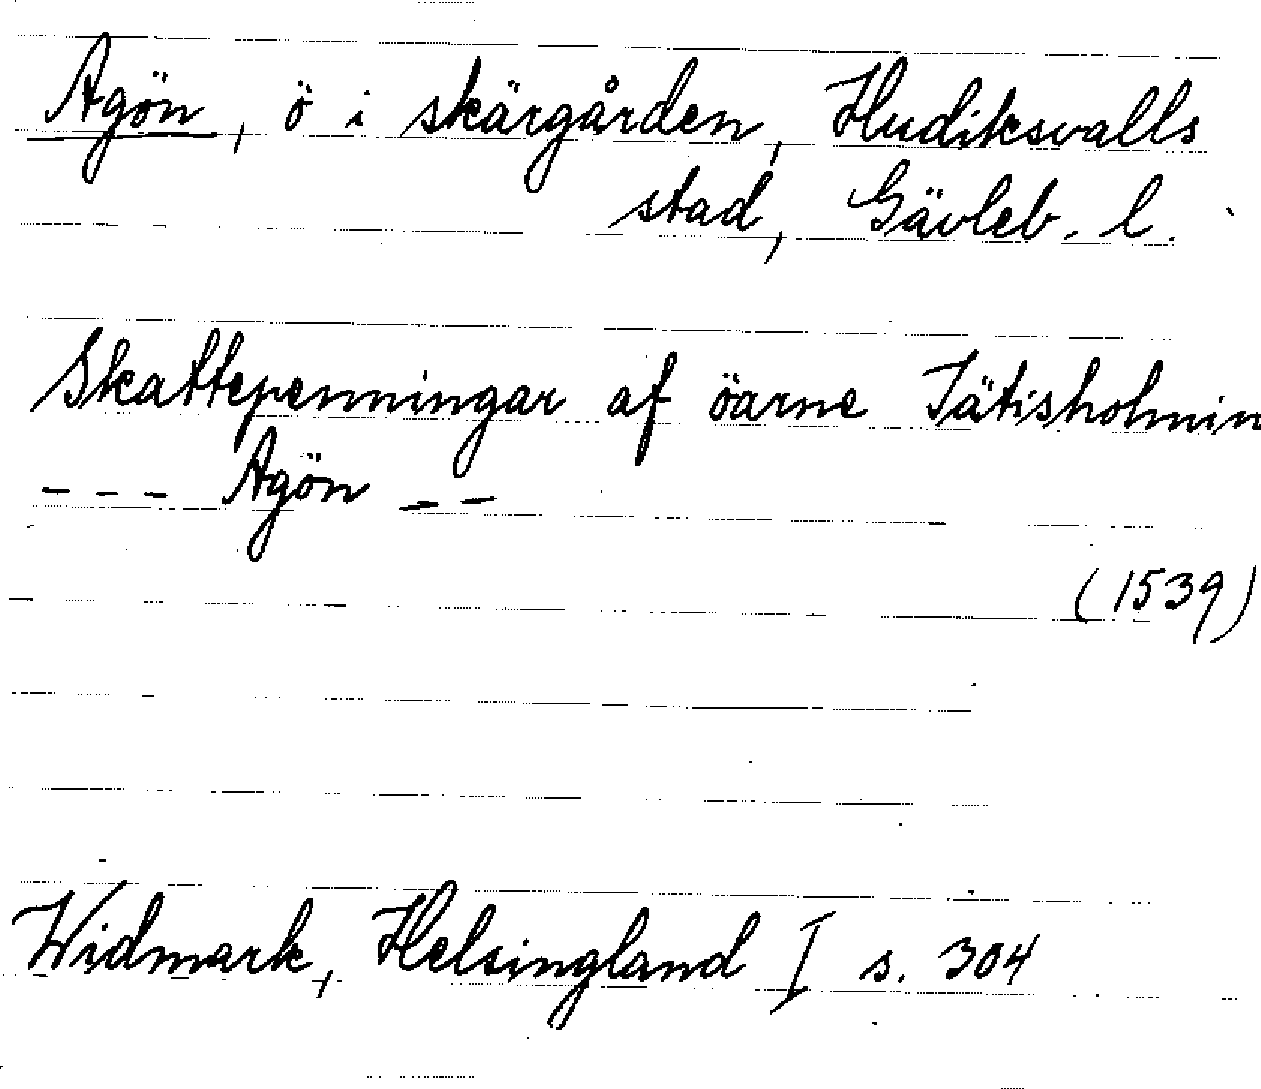 Agön, ö i skärgården, Hudiksvalls
stad, Gävleb. l.
Skattepenningar af öarne Tätisholmin
--- Agön --
(1539)
Widmark, Helsingland I s. 304